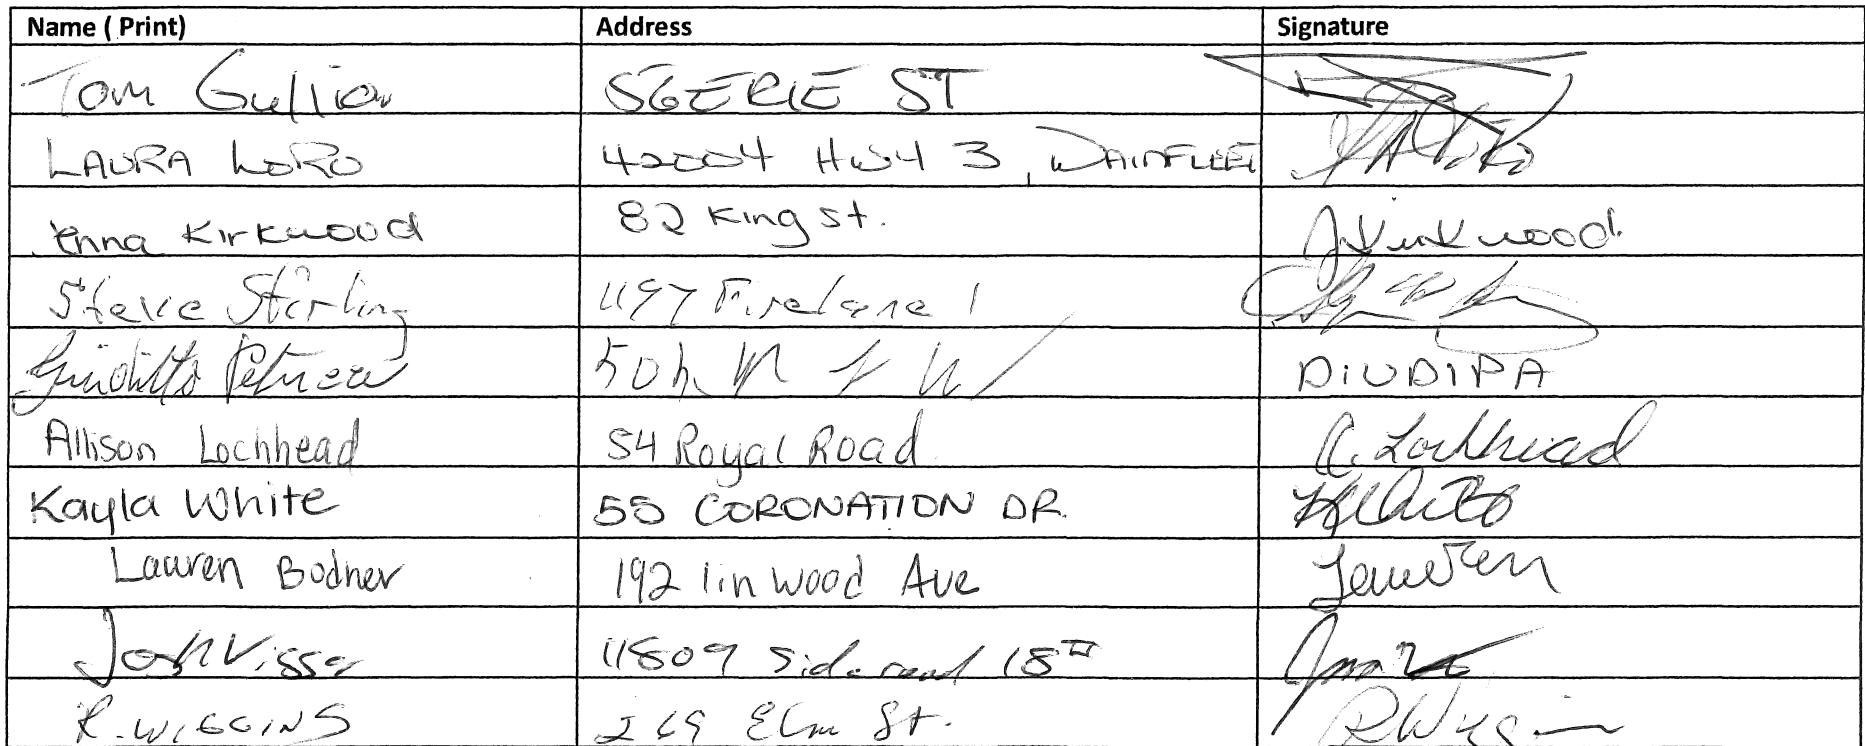 Name ( Print) Address Signature
Tom Gullion 56 ERIE ST
LAURA LORO 42004 HWY 3, WAINFLEET
Jenna Kirkwood 82 King St. JKirkwood
Steve Stirling 1197 Firelane 1
Giuditta DIUDIPA
Allison Lochhead 54 Royal Road A. Lochhead
Kayla White 55 CORONATION DR. KWhite
Lauren Bodner 192 linwood Ave Lauren
Josh Visser 11809 Sideroad 18
R. WIGGINS 269 Elm St. RWiggins